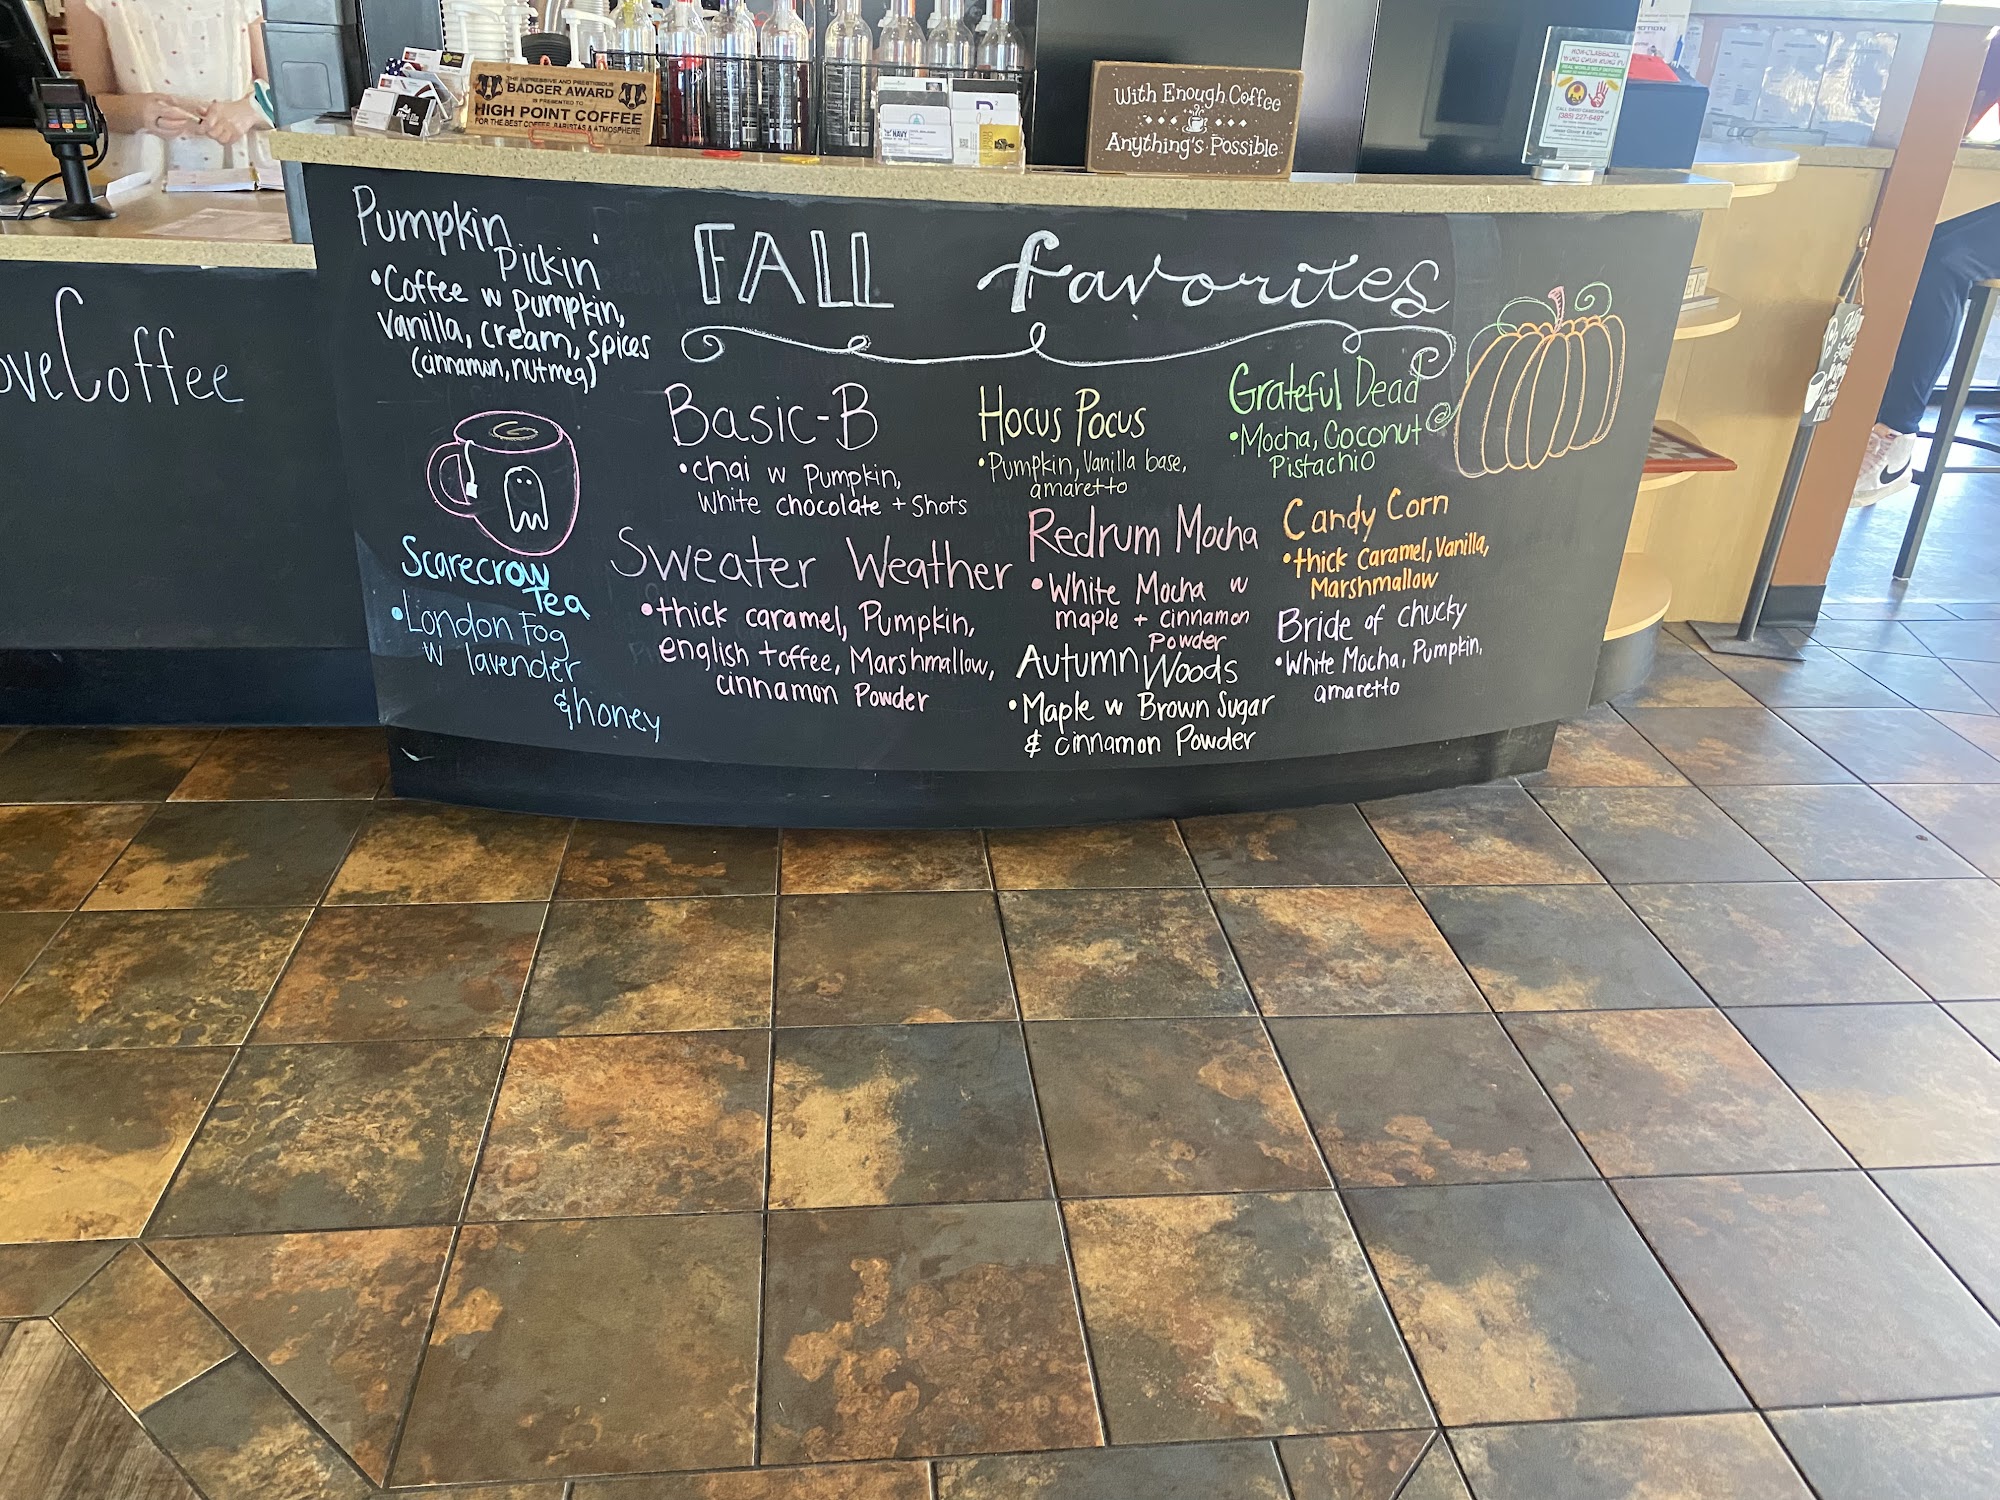 THE IMPRESSIVE AND PRESTIGIOUS
BADGER AWARD
IS PRESENTED TO
HIGH POINT COFFEE
FOR THE BEST COFFEE, BARISTAS & ATMOSPHERE
NAVY
With Enough Coffee
Anything's Possible
NON-CLASSICAL
WING CHUN KUNG FU
REAL WORLD SELF DEFENSE
(385) 227-6497
Pumpkin
Pickin
•Coffee w pumpkin,
Vanilla, cream, spices
(cinnamon, nutmeg)
Coffee
FALL favorites
Basic-B
•chai w Pumpkin,
White chocolate + Shots
Hocus Pocus
•Pumpkin, Vanilla base,
amaretto
Grateful Dead
•Mocha, Coconut
Pistachio
Scarecrow
Tea
•London Fog
w lavender
& honey
Sweater Weather
•thick caramel, Pumpkin,
english toffee, Marshmallow,
cinnamon Powder
Redrum Mocha
•White Mocha w
maple + cinnamon
Powder
Candy Corn
•thick Caramel, Vanilla,
Marshmallow
Autumn Woods
•Maple w Brown Sugar
& cinnamon Powder
Bride of chucky
•White Mocha, Pumpkin,
amaretto